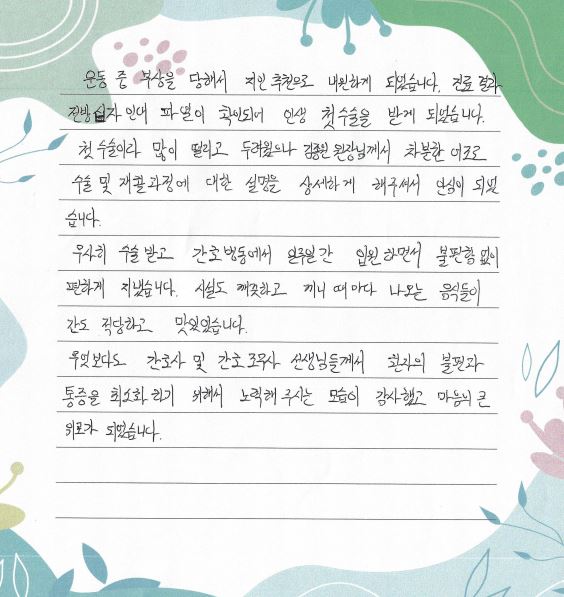 운동 중 부상을 당해서 지인 추천으로 내원하게 되었습니다. 진료 결과
전방십자인대 파열이 확인되어 인생 첫수술을 받게 되었습니다.
첫수술이라 많이 떨리고 두려웠으나 김종원 원장님께서 차분한 어조로
수술 및 재활과정에 대한 설명을 상세하게 해주셔서 안심이 되었
습니다.
무사히 수술받고 간호병동에서 일주일간 입원하면서 불편함 없이
편하게 지냈습니다. 시설도 깨끗하고 끼니 때마다 나오는 음식들이
간도 적당하고 맛있었습니다.
무엇보다도 간호사 및 간호조무사 선생님들께서 환자의 불편과
통증을 최소화하기 위해서 노력해주시는 모습이 감사했고 마음의 큰
위로가 되었습니다.